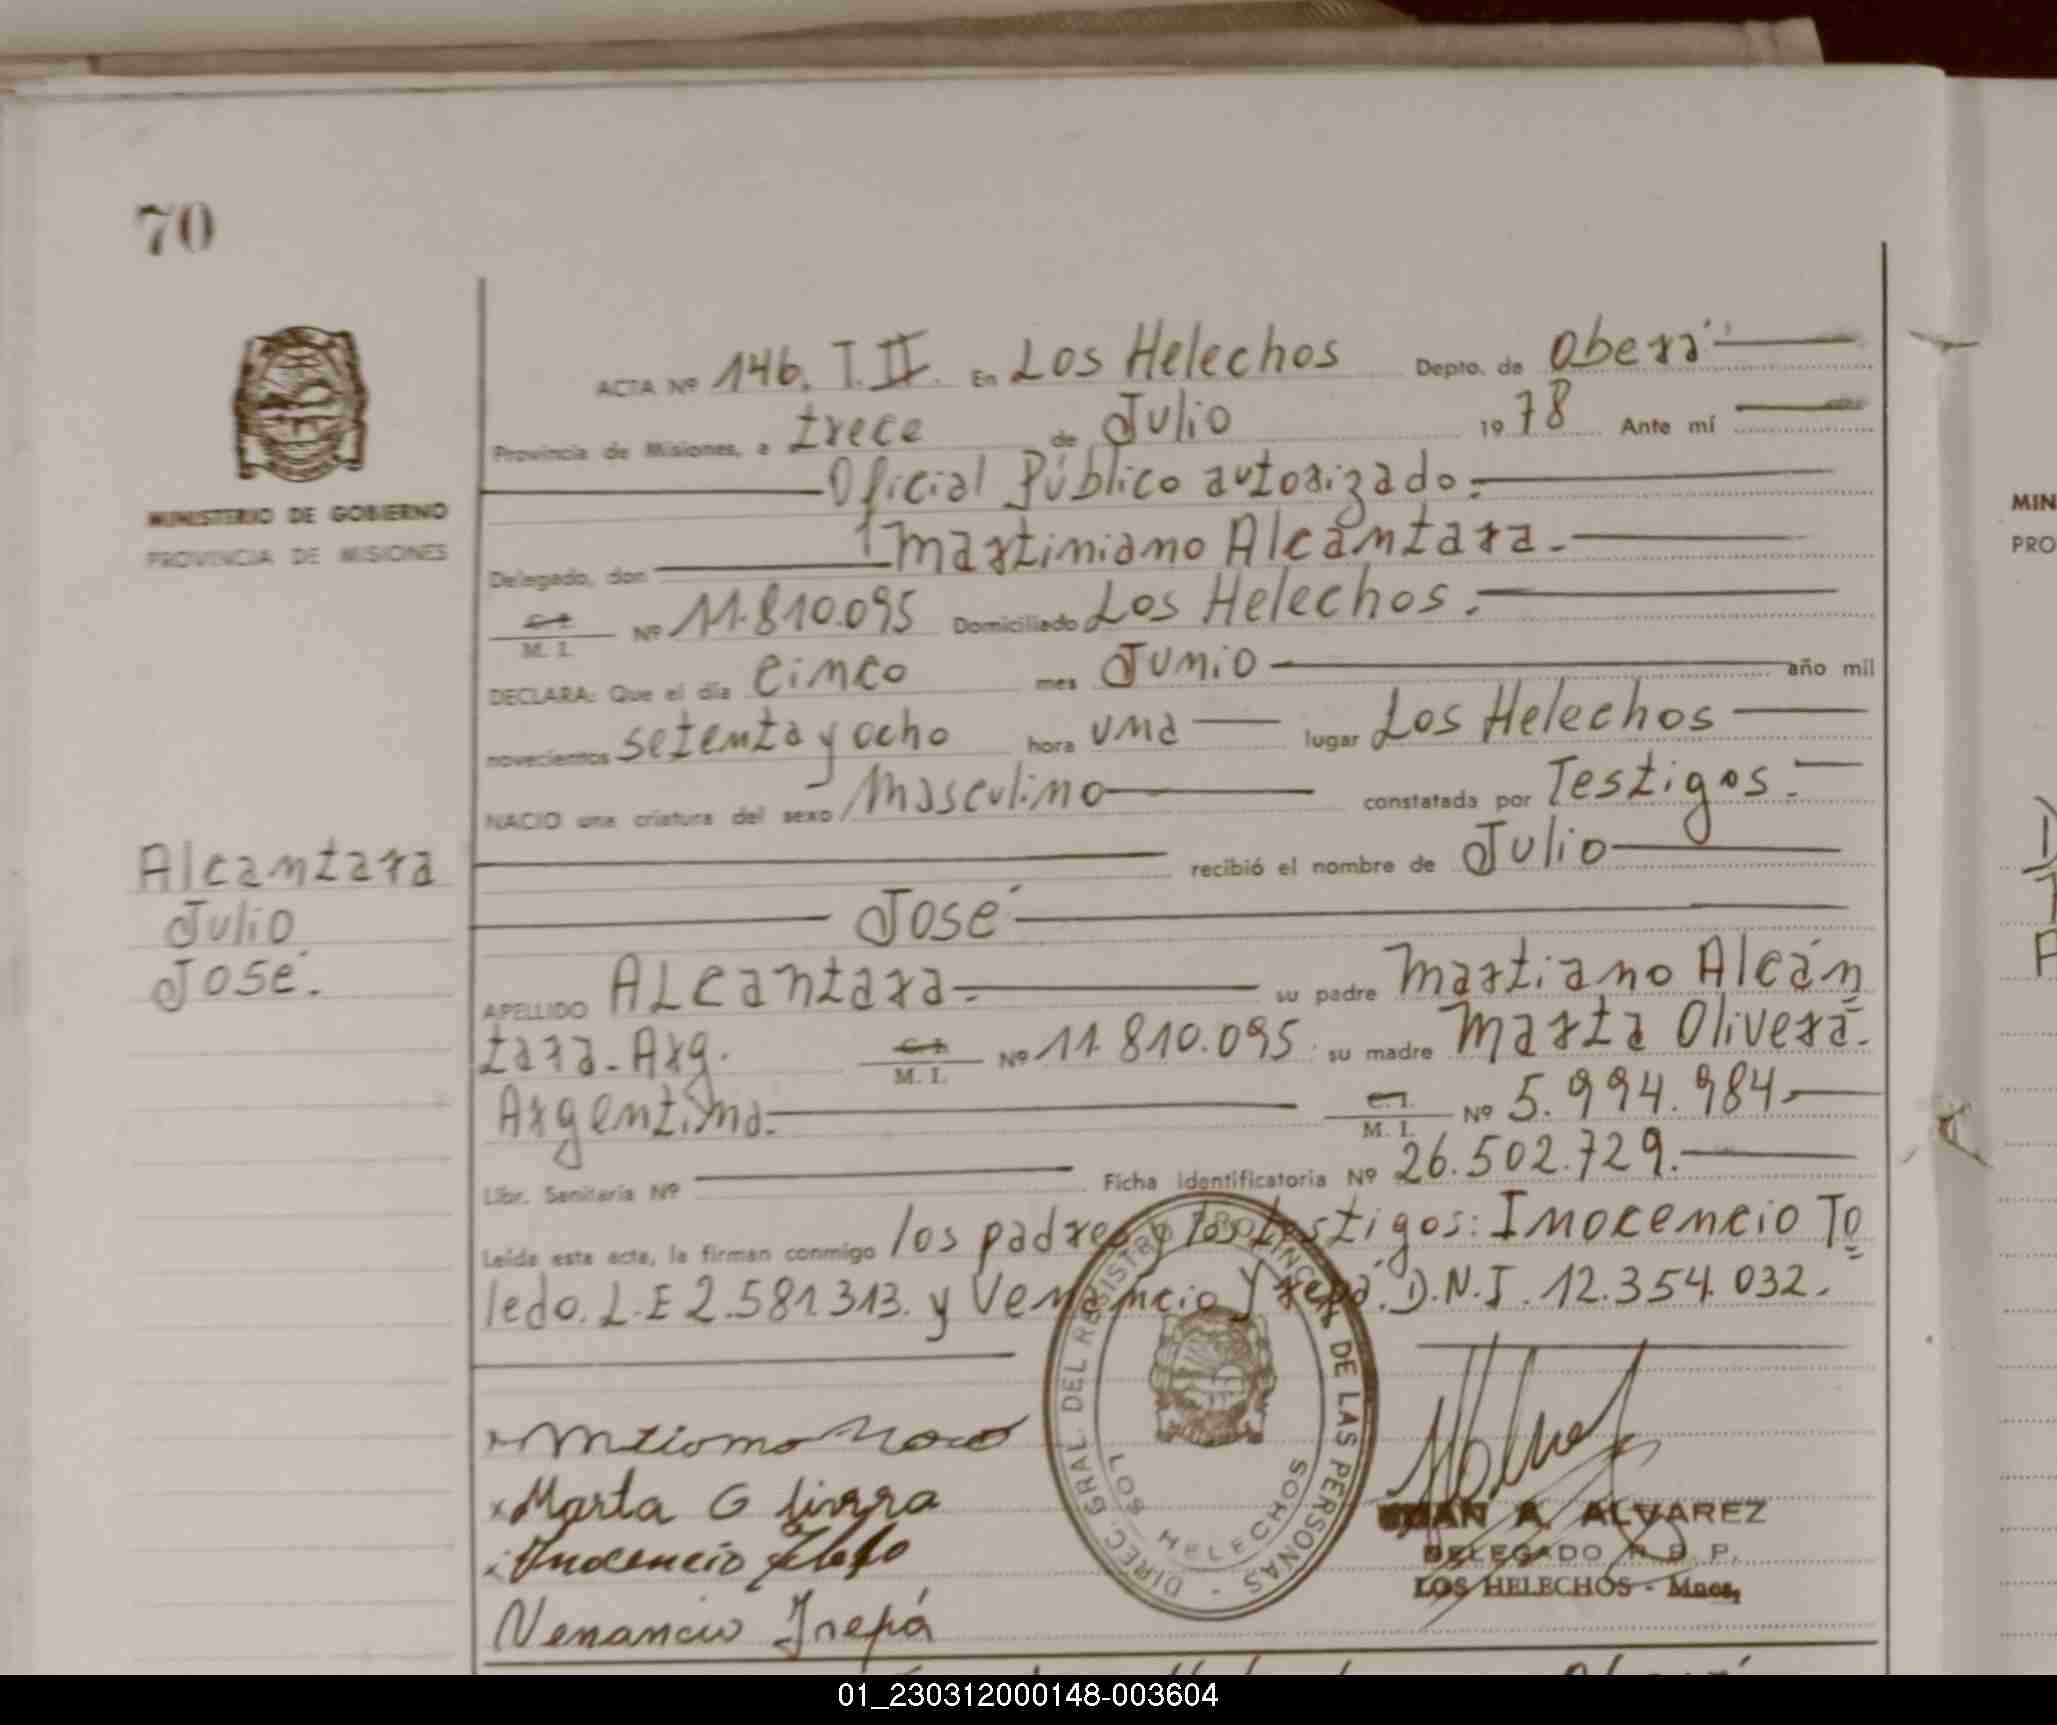 70
MINISTERIO DE GOBIERNO
PROVINCIA DE MISIONES
ACTA Nº 146. T. II. En Los Helechos Depto. de Oberá
Provincia de Misiones, a trece de Julio 1978 Ante mí
Oficial Público autorizado.
Delegado, don Martiniano Alcántara.
C. I. M. I. Nº 11.810.095 Domiciliado Los Helechos.
DECLARA: Que el día cinco mes Junio año mil
novecientos setenta y ocho hora una lugar Los Helechos
NACIO una criatura del sexo Masculino constatada por Testigos.
recibió el nombre de Julio
José
Alcantara
Julio
José.
APELLIDO ALcantara. su padre Martiano Alcán
tara. Arg. C. I. M. I. Nº 11.810.095. su madre Marta Olivera.
Argentina. C. I. M. I. Nº 5.994.984.
Libr. Sanitaria Nº Ficha identificatoria Nº 26.502.729.
Leída esta acta, la firman conmigo los padres y los testigos: Inocencio To
ledo. L.E 2.581.313. y Venancio Yrepá. D.N.I. 12.354.032.
Marta Olivera
Inocencio
Venancio Irepá
DIREC. GRAL. DEL REGISTRO PROVINCIAL DE LAS PERSONAS -
LOS HELECHOS
JUAN A. ALVAREZ
DELEGADO R. P.
LOS HELECHOS - Mnes,
MIN
PRO
01_230312000148-003604